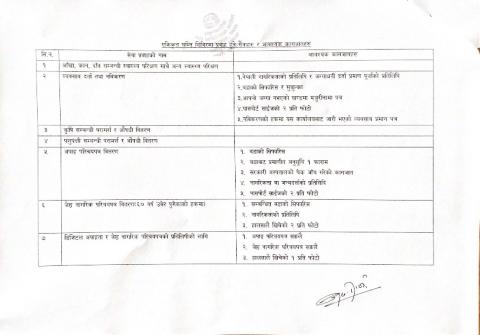 एकिकृत घुम्ति शिविरमा प्रवाह हुने सेवाहरु र आवश्यक कागजातहरु
सि.न. सेवा प्रवाहको नाम आवश्यक कागजातहरु
१ आँखा, कान, दाँत सम्बन्धी स्वास्थ्य परिक्षण साथै अन्य स्वास्थ्य परिक्षण
२ व्यवसाय दर्ता तथा नविकरण १.नेपाली नागरिकताको प्रतिलिपि र अस्थायी दर्ता प्रमाण पुर्जाको प्रतिलिपि
२.वडाको सिफारिस र मुचुल्का
३.आफ्नो जग्गा नभएको खण्डमा मञ्जुरीनामा पत्र
४.पासपोर्ट साईजको २ प्रति फोटो
५.नविकरणको हकमा यस कार्यालयबाट जारी भएको व्यवसाय प्रमाण पत्र
३ कृषि सम्बन्धी परामर्श र औषधी वितरण
४ पशुपन्छी सम्बन्धी परामर्श र औषधी वितरण
५ अपाङ्ग परिचयपत्र वितरण १. वडाको सिफारिस
२. वडाबाट प्रमाणीत अनुसुचि १ फाराम
३. सरकारी अस्पतालको चेक जाँच गरेको कागजात
४. नागरिकता वा जन्मदर्ताको प्रतिलिपि
५. पासपोर्ट साईजको २ प्रति फोटो
६ जेष्ठ नागरिक परिचयपत्र वितरण(६० वर्ष उमेर पुगेकाको हकमा) १. सम्बन्धित वडाको सिफारिस
२. नागरिकताको प्रतिलिपि
३. हालसालै खिचेको २ प्रति फोटो
७ डिजिटल अपाङ्गता र जेष्ठ नागरिक परिचयपत्रको प्रतिलिपीको लागि १. अपाङ्ग परिचयपत्र सक्कलै
२. जेष्ठ नागरिक परिचयपत्र सक्कलै
३. हालसालै खिचेको १ प्रति फोटो